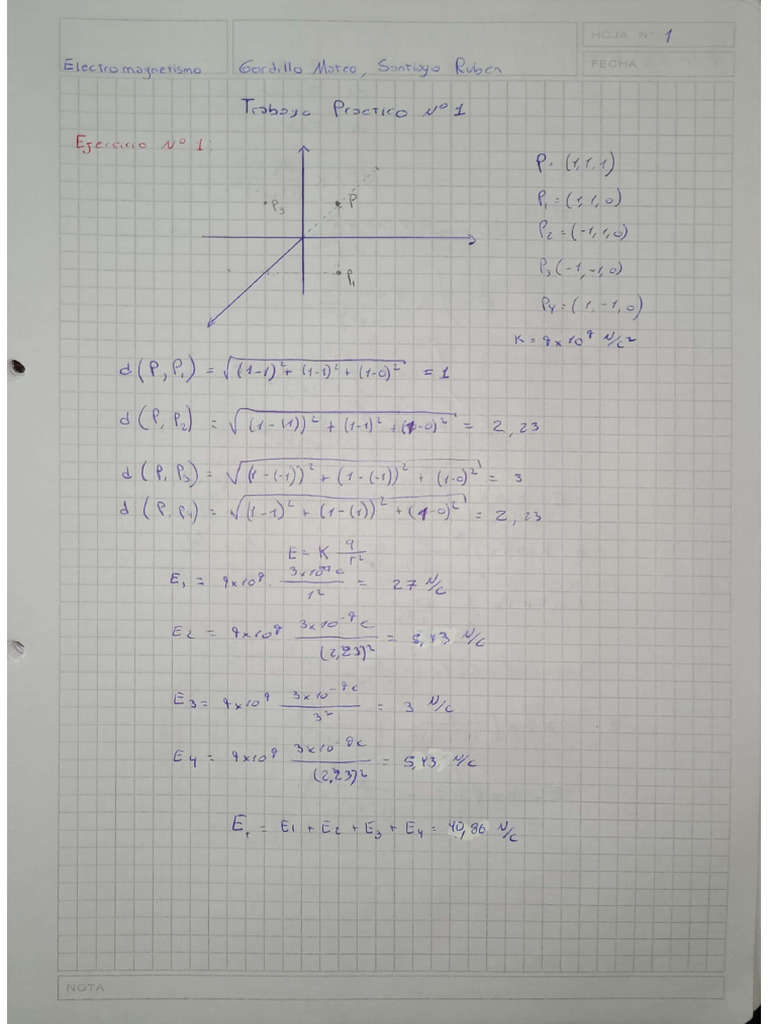 HOJA N° 1
Electromagnetismo Gordillo Mateo, Santiago Ruben
FECHA
Trabajo Practico N° 1
Ejercicio N° 1:
P = (1,1,1)
P₁ = (1,1,0)
P₂ = (-1,1,0)
P₃ (-1,-1,0)
P₄ = (1,-1,0)
K = 9x10⁹ N/c²
P₃
P
P₁
d(P,P₁) = √((1-1)² + (1-1)² + (1-0)²) = 1
d(P,P₂) = √((1-(1))² + (1-1)² + (1-0)²) = 2,23
d(P,P₃) = √((1-(-1))² + (1-(-1))² + (1-0)²) = 3
d(P,P₄) = √((1-1)² + (1-(1))² + (1-0)²) = 2,23
E = K q/r²
E₁ = 9x10⁹ 3x10⁻⁹c/1² = 27 N/c
E₂ = 9x10⁹ 3x10⁻⁹c/(2,23)² = 5,43 N/c
E₃ = 9x10⁹ 3x10⁻⁹c/3² = 3 N/c
E₄ = 9x10⁹ 3x10⁻⁹c/(2,23)² = 5,43 N/c
Eᵣ = E₁ + E₂ + E₃ + E₄ = 40,86 N/c
NOTA